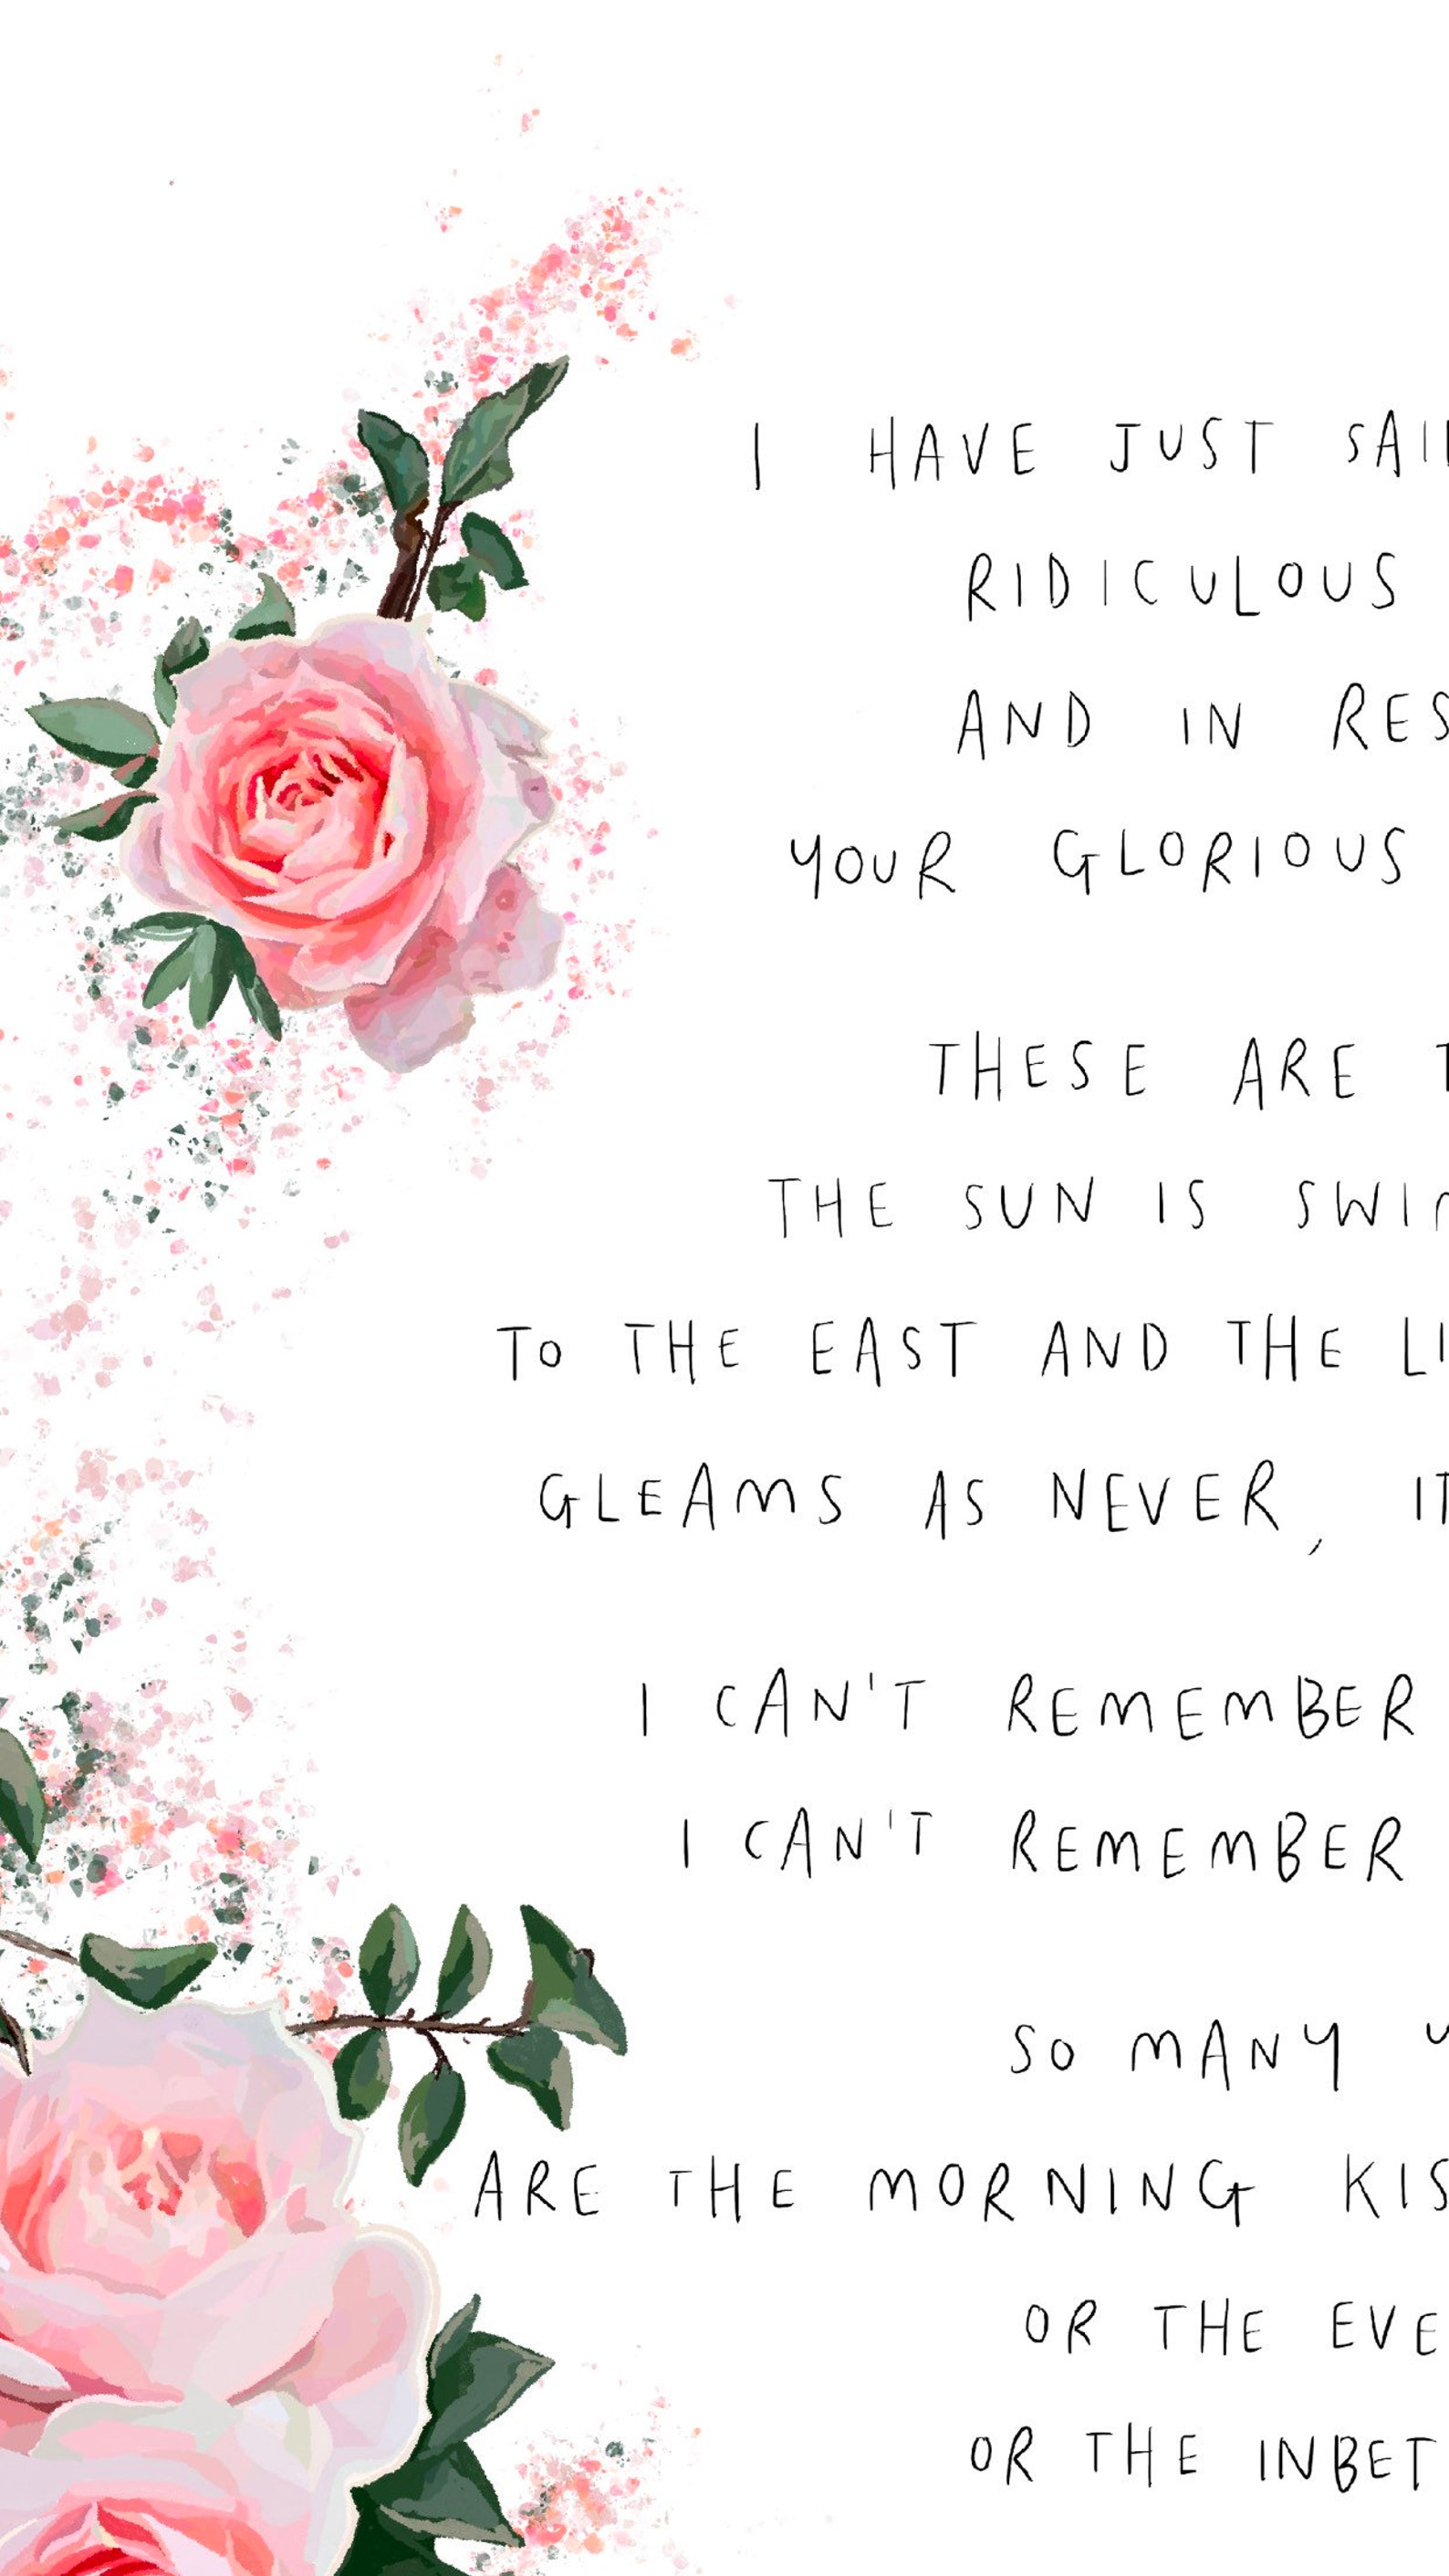 I HAVE JUST SAI
RIDICULOUS
AND IN RES
YOUR GLORIOUS
THESE ARE T
THE SUN IS SWI
TO THE EAST AND THE LI
GLEAMS AS NEVER, IT
I CAN'T REMEMBER
I CAN'T REMEMBER
SO MANY
ARE THE MORNING KIS
OR THE EVE
OR THE INBET